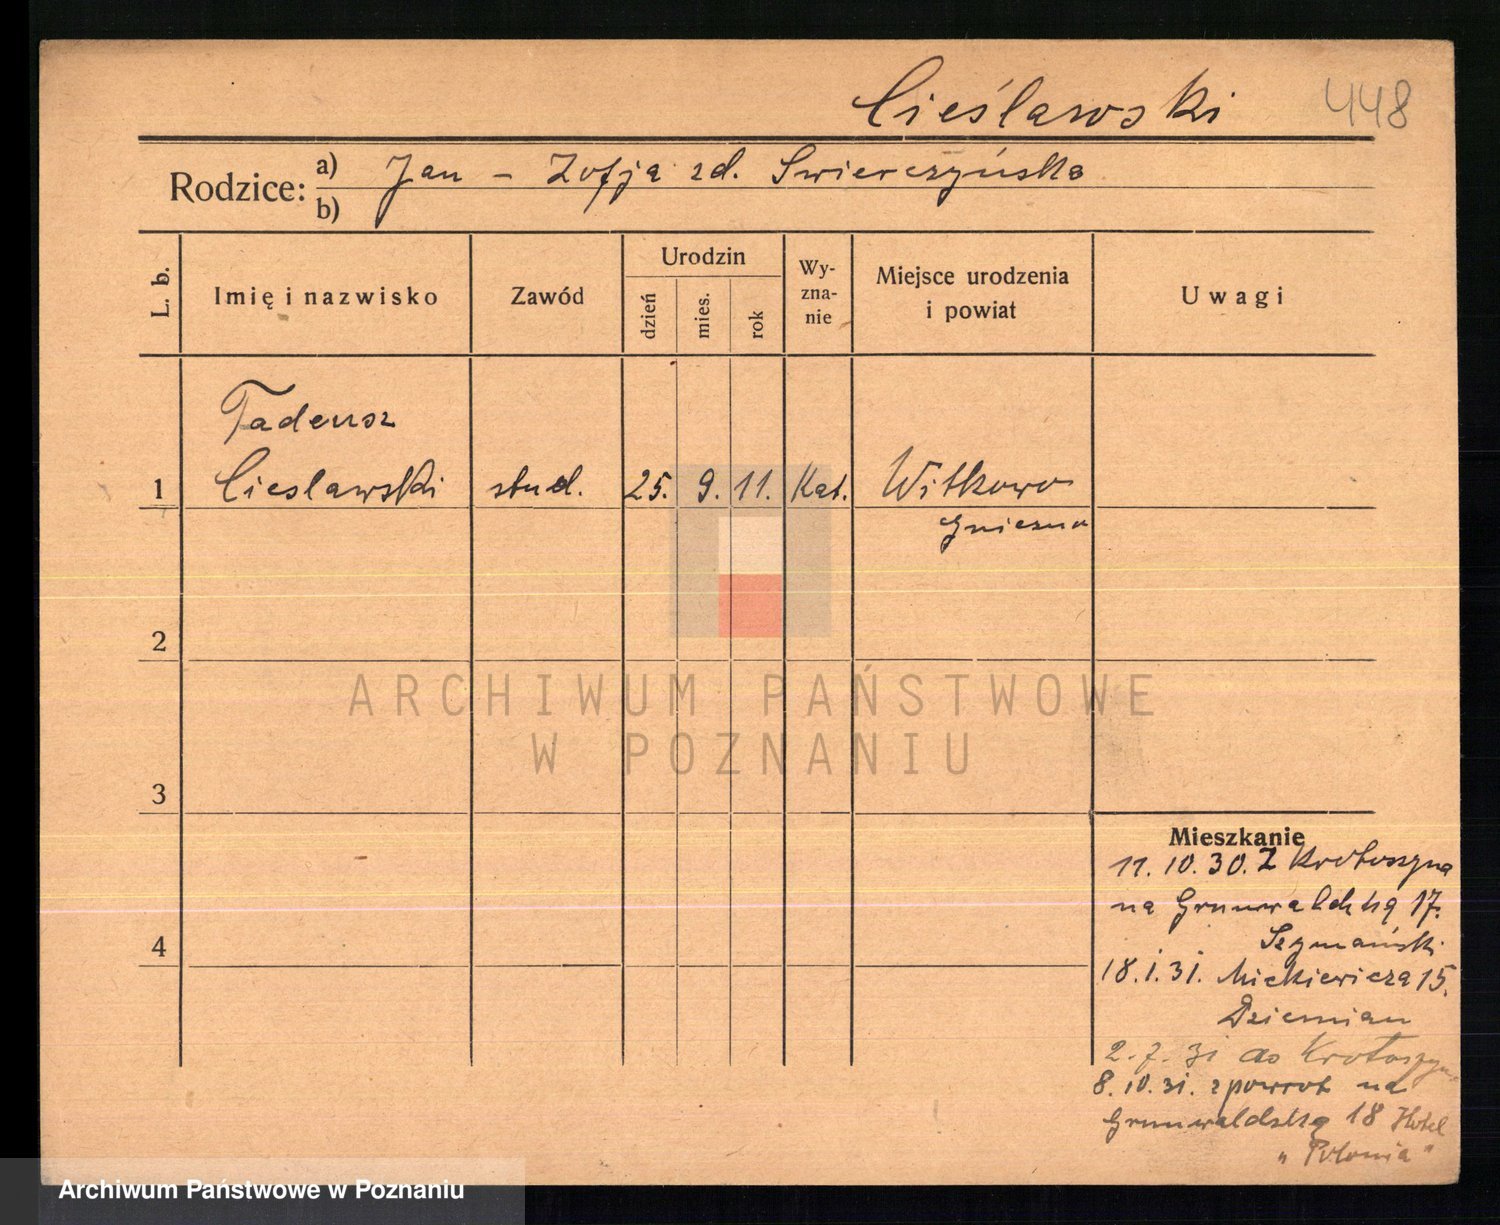 Cieślawski 448
Rodzice: a) Jan - Zofja zd. Swierczyńska
b)
L. b. Imię i nazwisko Zawód Urodzin dzień mies. rok Wy-zna-nie Miejsce urodzenia i powiat Uwagi
Tadeusz
1 Cieslawski stud. 25. 9. 11. Kat. Witkowo
Gniezno
2
ARCHIWUM PAŃSTWOWE
W POZNANIU
3
Mieszkanie
11.10.30. Z Krotoszyna
na Grunwaldzką 17.
Szymański
4
18.1.31. Mickiewicza 15.
Dziemian
2.7.31 do Krotoszyna
8.10.31. zpowrot na
Grunwaldzką 18 Hotel
"Polonia"
Archiwum Państwowe w Poznaniu